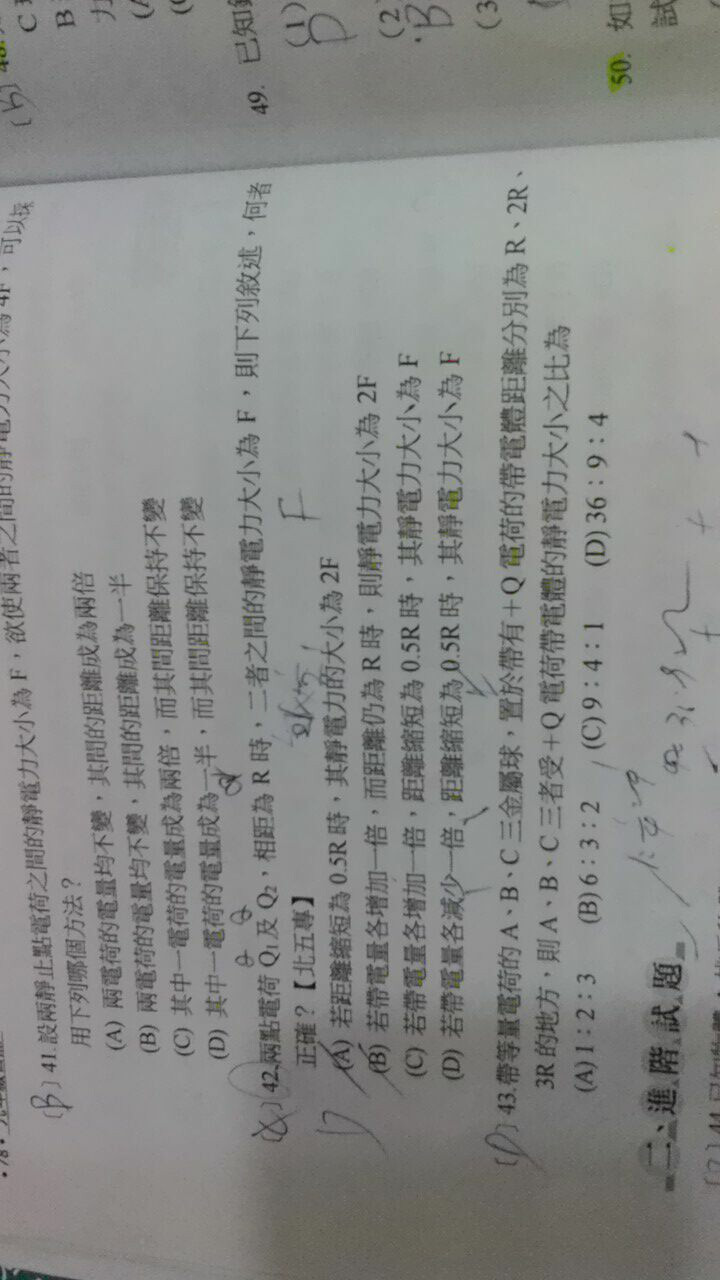 設兩靜止點電荷之間的靜電力大小為 F，欲使兩者之間的靜電力大小為 4F，可以採
用下列哪個方法？
(A) 兩電荷的電量均不變，其間的距離成為兩倍
(B) 兩電荷的電量均不變，其間的距離成為一半
(C) 其中一電荷的電量成為兩倍，而其間距離保持不變
(D) 其中一電荷的電量成為一半，而其間距離保持不變
42.兩點電荷 Q₁及 Q₂，相距為 R 時，二者之間的靜電力大小為 F，則下列敘述，何者
正確？【北五專】
(A) 若距離縮短為 0.5R 時，其靜電力的大小為 2F
F
(B) 若帶電量各增加一倍，而距離仍為 R 時，則靜電力大小為 2F
(C) 若帶電量各增加一倍，距離縮短為 0.5R 時，其靜電力大小為 F
(D) 若帶電量各減少一倍，距離縮短為 0.5R 時，其靜電力大小為 F
(D) 43.帶等量電荷的 A、B、C 三金屬球，置於帶有+Q 電荷的帶電體距離分別為 R、2R、
3R 的地方，則 A、B、C 三者受+Q 電荷帶電體的靜電力大小之比為
(A) 1：2：3 (B) 6：3：2 (C) 9：4：1 (D) 36：9：4
二、進階試題
49. 已知
(1)
(2)
B
(3
50. 如
試